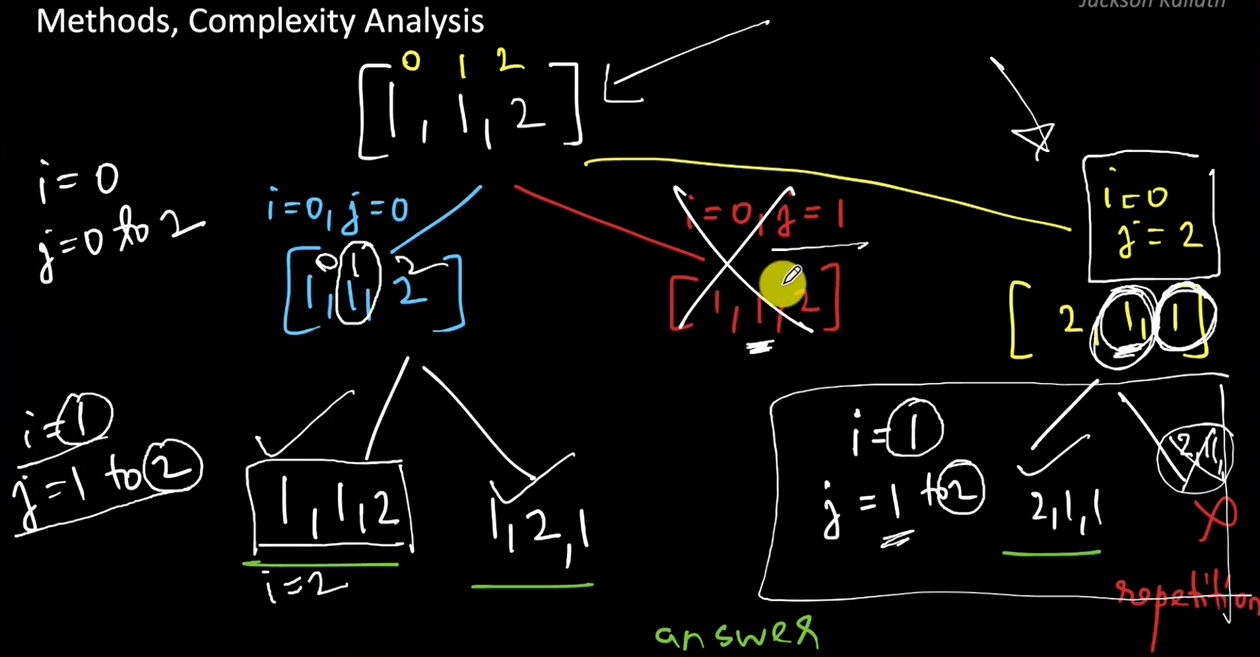 Methods, Complexity Analysis
0 1 2
[1, 1, 2]
i=0
j=0 to 2
i=0, j=0
0 1 2
[1, 1, 2]
i=0, j=1
[1, 1, 2]
i=0
j=2
[2, 1, 1]
i=1
j=1 to 2
1, 1, 2
i=2
1, 2, 1
i=1
j=1 to 2
2, 1, 1
2, 1, 1
repetition
answer